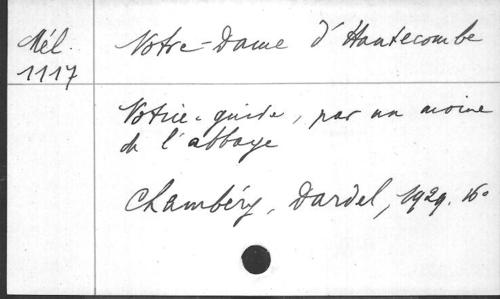 Mél.
1117
Notre-Dame d'Hautecombe
Notice-guide, par un moine
de l'abbaye
Chambéry, Dardel, 1929. 16°